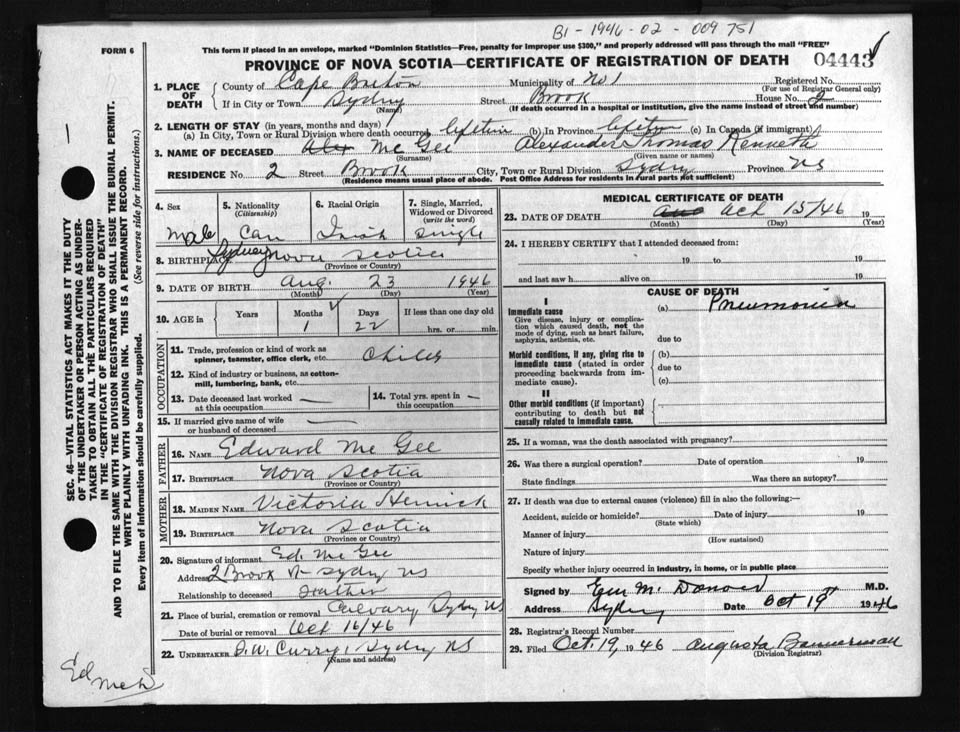 B1-1946-02-009751
FORM 6
This form if placed in an envelope, marked "Dominion Statistics—Free, penalty for improper use $300," and properly addressed will pass through the mail "FREE"
PROVINCE OF NOVA SCOTIA—CERTIFICATE OF REGISTRATION OF DEATH 04443
1. PLACE OF DEATH { County of Cape Breton Municipality of No 1 Registered No.
(For use of Registrar General only)
If in City or Town Sydney Street Brook House No. 2
(Name) (If death occurred in a hospital or institution, give the name instead of street and number)
2. LENGTH OF STAY (in years, months and days)
(a) In City, Town or Rural Division where death occurred lifetime (b) In Province lifetime (c) In Canada (if immigrant)
3. NAME OF DECEASED Alex Mc Gee Alexander Thomas Kenneth
(Surname) (Given name or names)
RESIDENCE No. 2 Street Brook City, Town or Rural Division Sydney Province NS
(Residence means usual place of abode. Post Office Address for residents in rural parts not sufficient)
4. Sex male
5. Nationality (Citizenship) Can
6. Racial Origin Irish
7. Single, Married, Widowed or Divorced (write the word) single
8. BIRTHPLACE Sydney Nova Scotia
(Province or Country)
9. DATE OF BIRTH Aug. 23 1946
(Month) (Day) (Year)
10. AGE in Years Months 1 Days 22 If less than one day old
hrs. or min.
OCCUPATION
11. Trade, profession or kind of work as spinner, teamster, office clerk, etc. Child
12. Kind of industry or business, as cotton-mill, lumbering, bank, etc.
13. Date deceased last worked at this occupation —
14. Total yrs. spent in this occupation —
15. If married give name of wife or husband of deceased —
FATHER
16. NAME Edward Mc Gee
17. BIRTHPLACE Nova Scotia
(Province or Country)
MOTHER
18. MAIDEN NAME Victoria
19. BIRTHPLACE Nova Scotia
(Province or Country)
20. Signature of informant Ed. Mc Gee
Address 2 Brook St Sydney NS
Relationship to deceased Father
21. Place of burial, cremation or removal Calvary Sydney NS
Date of burial or removal Oct 16/46
22. UNDERTAKER A.W. Curry, Sydney NS
(Name and address)
MEDICAL CERTIFICATE OF DEATH
23. DATE OF DEATH Oct 15/46 19
(Month) (Day) (Year)
24. I HEREBY CERTIFY that I attended deceased from:
19 to 19
and last saw h alive on 19
CAUSE OF DEATH
I
Immediate cause (a) Pneumonia
Give disease, injury or complication which caused death, not the mode of dying, such as heart failure, asphyxia, asthenia, etc.
due to
Morbid conditions, if any, giving rise to immediate cause (stated in order proceeding backwards from immediate cause).
(b)
due to
(c)
II
Other morbid conditions (if important) contributing to death but not causally related to immediate cause.
25. If a woman, was the death associated with pregnancy?
26. Was there a surgical operation? Date of operation 19
State findings Was there an autopsy?
27. If death was due to external causes (violence) fill in also the following:—
Accident, suicide or homicide? Date of injury 19
(State which)
Manner of injury
(How sustained)
Nature of injury
Specify whether injury occurred in industry, in home, or in public place
Signed by M.D.
Address Sydney Date Oct 19 1946
28. Registrar's Record Number
29. Filed Oct. 19 1946 Augusta Bannerman
(Division Registrar)
SEC. 46—VITAL STATISTICS ACT MAKES IT THE DUTY
OF THE UNDERTAKER OR PERSON ACTING AS UNDER-
TAKER TO OBTAIN ALL THE PARTICULARS REQUIRED
IN THE "CERTIFICATE OF REGISTRATION OF DEATH"
AND TO FILE THE SAME WITH THE DIVISION REGISTRAR WHO SHALL ISSUE THE BURIAL PERMIT.
WRITE PLAINLY WITH UNFADING INK. THIS IS A PERMANENT RECORD.
Every item of information should be carefully supplied. (See reverse side for instructions.)
Ed